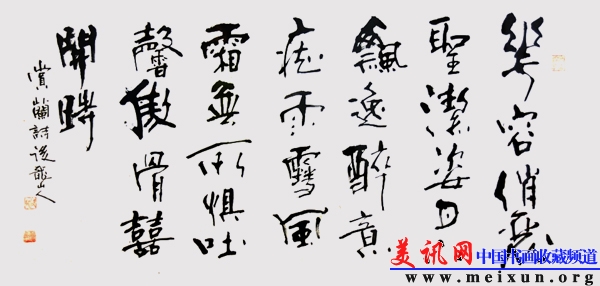 花容俏麗
聖潔姿
飄逸醉意
痴雨雪風
霜無所惧吐
馨傲骨囍
開時
賞蘭詩後龍山人
美讯网中国书画收藏频道
www.meixun.org